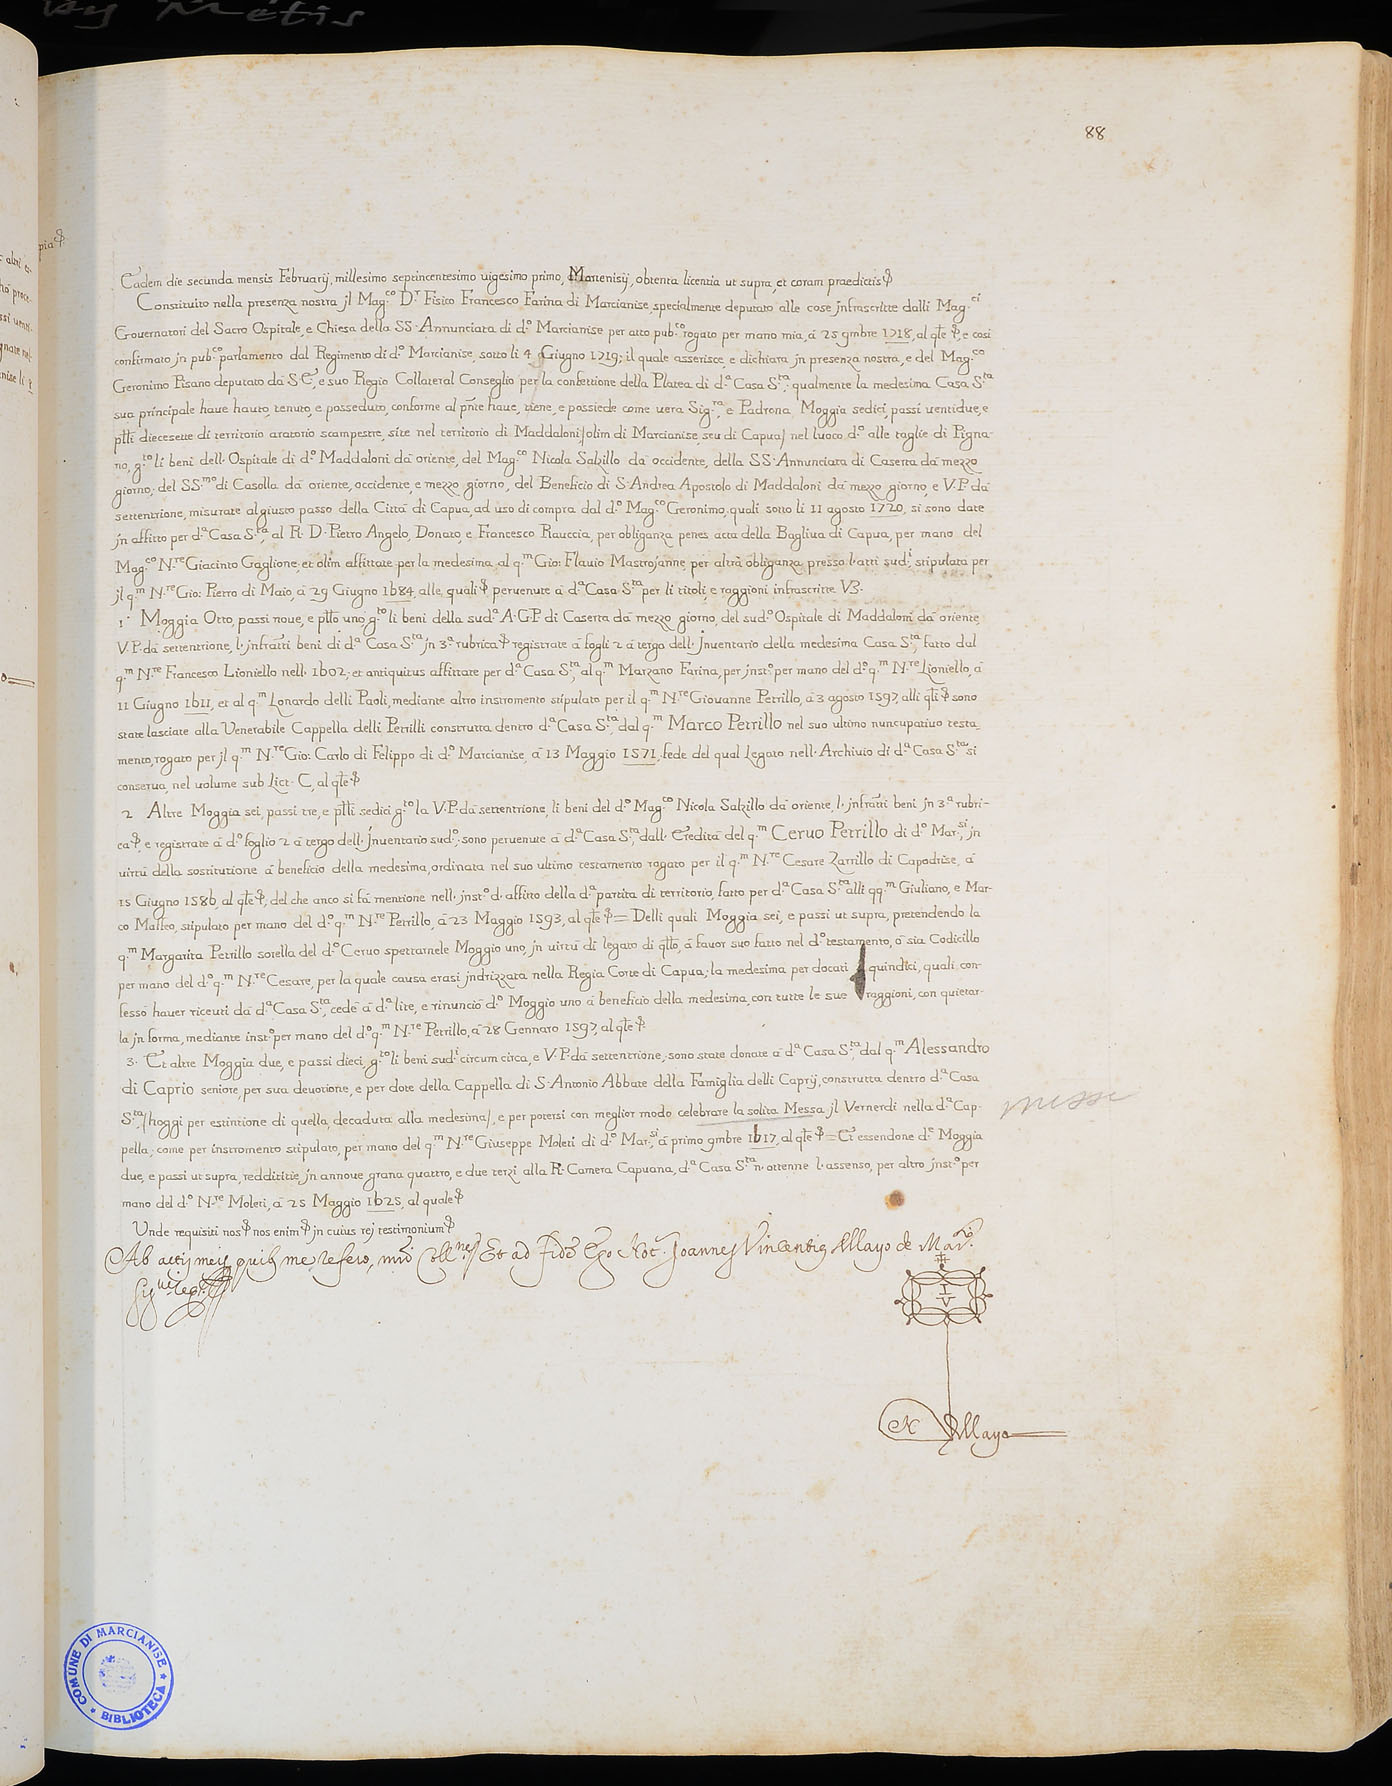 by Metis
88
Eadem die secunda mensis Februarij, millesimo septincentesimo uigesimo primo, Manenisij, obtenta licentia ut supra, et coram praedictis &
Constituito nella presenza nostra jl Mag.co D.r Fisico Francesco Farina di Marcianise, specialmente deputato alle cose jnfrascritte dalli Mag.ci
Grouernatori del Sacro Ospitale, e Chiesa della SS. Annunciata di d.o Marcianise per atto pub.co rogato per mano mia, à 25 9mbre 1718, al qle &, e così
confirmato jn pub.co parlamento dal Regimento di d.o Marcianise, sotto li 4 Giugno 1719; il quale asserisce, e dichiara jn presenza nostra, e del Mag.co
Geronimo Pisano deputato dà S.E., e suo Regio Collateral Conseglio per la confettione della Platea di d.a Casa S.ta, qualmente la medesima Casa S.ta
sua principale haue hauto, tenuto, e posseduto, conforme al pnte haue, tiene, e possiede come uera Sig.ra, e Padrona, Moggia sedici, passi uentidue, e
ptti diecesette di territorio aratorio scampestre, site nel territorio di Maddaloni/olim di Marcianise, seu di Capua/ nel luoco d.o alle taglie di Pigna-
no, g.to li beni dell'Ospitale di d.o Maddaloni dà oriente, del Mag.co Nicola Salzillo dà occidente, della SS. Annunciata di Caserta dà mezzo
giorno, del SS.mo di Casolla dà oriente, occidente, e mezzo giorno, del Beneficio di S. Andrea Apostolo di Maddaloni dà mezzo giorno, e V.P. dà
settentrione, misurate al giusto passo della Città di Capua, ad uso di compra dal d.o Mag.co Geronimo, quali sotto li 11 agosto 1720, si sono date
jn affitto per d.a Casa S.ta, al R. D. Pietro Angelo, Donato, e Francesco Rauccia, per obliganza penes acta della Bagliua di Capua, per mano del
Mag.co N.re Giacinto Gaglione, et olim affittate per la medesima al q.m Gio: Flauio Mastrojanne, per altrà obliganza presso l'atti sud.i, stipulata per
jl q.m N.re Gio: Pietro di Maio, à 29 Giugno 1684, alle quali & peruenute à d.a Casa S.ta per li titoli, e raggioni infrascritte VZ.
1. Moggia Otto, passi noue, e ptto uno, g.to li beni della sud.a A.G.P. di Caserta dà mezzo giorno, del sud.o Ospitale di Maddaloni dà oriente,
V.P. dà settentrione, l'jnfratti beni di d.a Casa S.ta jn 3.a rubrica & registrate à fogli 2 à tergo dell'Jnuentario della medesima Casa S.ta, fatto dal
q.m N.re Francesco Lioniello nell'1602, et antiquitus affittate per d.a Casa S.ta, al q.m Marzano Farina, per jnst.o per mano del d.o q.m N.re Lioniello, à
11 Giugno 1611, et al q.m Lonardo delli Paoli, mediante altro instromento stipulato per il q.m N.re Giouanne Petrillo, à 3 agosto 1597, alli qli & sono
state lasciate alla Venerabile Cappella delli Petrilli construtta dentro d.a Casa S.ta, dal q.m Marco Petrillo nel suo ultimo nuncupatiuo testa-
mento, rogato per jl q.m N.re Gio: Carlo di Felippo di d.o Marcianise, à 13 Maggio 1571, fede del qual Legato nell'Archiuio di d.a Casa S.ta si
conserua, nel uolume sub Lict. C, al qle &
2 Altre Moggia sei, passi tre, e ptti sedici g.to la V.P. dà settentrione, li beni del d.o Mag.co Nicola Salzillo dà oriente, l'jnfratti beni jn 3.a rubri-
ca &, e registrate à d.o foglio 2 à tergo dell'Jnuentario sud.o, sono peruenute à d.a Casa S.ta, dall'Eredità del q.m Ceruo Petrillo di d.o Mar.si, jn
uirtù della sostitutione à beneficio della medesima, ordinata nel suo ultimo testamento rogato per il q.m N.re Cesare Zarrillo di Capodrise, à
15 Giugno 1586, al qle &, del che anco si fà mentione nell'jnst.o d'affitto della d.a partita di territorio, fatto per d.a Casa S.ta alli qq.m Giuliano, e Mar-
co Maffeo, stipulato per mano del d.o q.m N.re Petrillo, à 23 Maggio 1593, al qle & = Delli quali Moggia sei, e passi ut supra, pretendendo la
q.m Margarita Petrillo sorella del d.o Ceruo spettarnele Moggio uno, jn uirtù di legato di qllo, à fauor suo fatto nel d.o testamento, ò sia Codicillo
per mano del d.o q.m N.re Cesare, per la quale causa erasi jndrizzata nella Regia Corte di Capua; la medesima per docati quindici, quali con-
fessò hauer riceuti dà d.a Casa S.ta, cedè à d.a lite, e rinunciò d.o Moggio uno à beneficio della medesima, con tutte le sue raggioni, con quietar-
la jn forma, mediante inst.o per mano del d.o q.m N.re Petrillo, à 28 Gennaro 1597, al qle &
3. Et altre Moggia due, e passi dieci, g.to li beni sud.i circum circa, e V.P. dà settentrione, sono state donate à d.a Casa S.ta, dal q.m Alessandro
di Caprio seniore, per sua deuotione, e per dote della Cappella di S. Antonio Abbate della Famiglia delli Caprij, construtta dentro d.a Casa
S.ta,/hoggi per estintione di quella, decaduta alla medesima/, e per potersi con meglior modo celebrare la solita Messa jl Vernerdì nella d.a Cap-
messe
pella, come per instromento stipulato, per mano del q.m N.re Giuseppe Moleti di d.o Mar.si, à primo 9mbre 1617, al qle & = Et essendone d.e Moggia
due, e passi ut supra, reddititie jn annoue grana quattro, e due terzi alla R. Camera Capuana, d.a Casa S.ta n'ottenne l'assenso, per altro jnst.o per
mano del d.o N.re Moleti, à 25 Maggio 1625, al quale &
Unde requisiti nos & nos enim & jn cuius rej testimonium &
Ab actis meis, quib. me refero, Et ad Fidem Ego Not. Joannes Vincentius Allayo de Mar.si
I
V
N Allayo
COMUNE DI MARCIANISE * BIBLIOTECA *